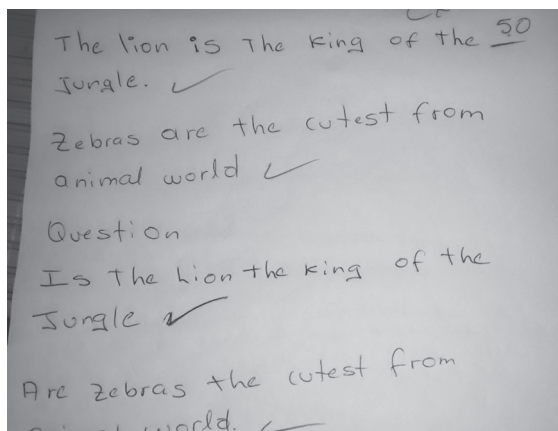 50
The lion is The king of the
Jungle.
Zebras are the cutest from
animal world
Question
Is The Lion the king of the
Jungle
Are zebras the cutest from
world.